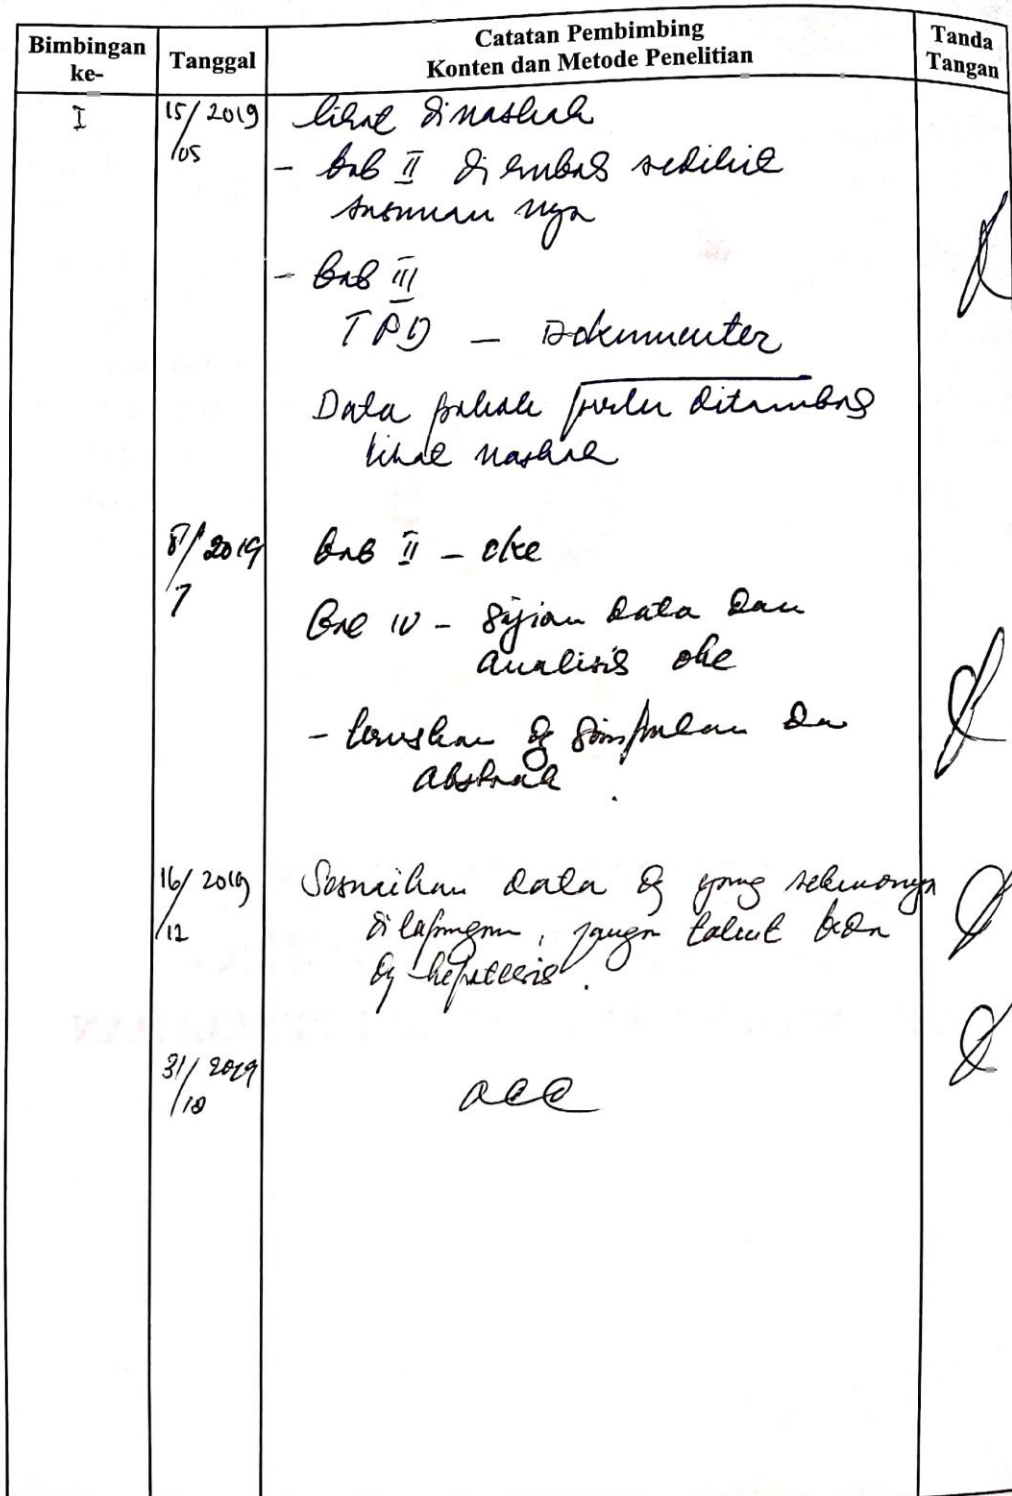 Bimbingan ke-
Tanggal
Catatan Pembimbing
Konten dan Metode Penelitian
Tanda Tangan
I
15/2019
/05
lihat dinaskah
- bab II di rubah sedikit
susunan nya
- Bab III
TPD - Dokumenter
Data pokok perlu ditambah
lihat naskah
8/2019
7
Bab II - oke
Bab IV - Sajian data dan
analisis oke
- teruskan dg simpulan dan
abstrak.
16/2019
/12
Sesuaikan data dg yang sebenarnya
di lapangan, jangan takut beda
dg hepotesis.
31/2019
/10
acc